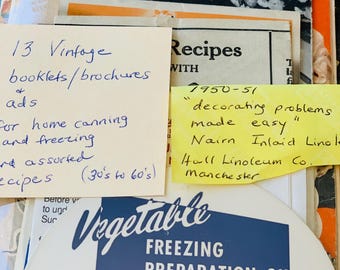 13 Vintage
booklets/brochures
& ads
for home canning
and freezing
and assorted
recipes (30's to 60's)
Recipes
WITH
1950-51
"decorating problems
made easy"
Nairn Inlaid Linole
Hall Linoleum Co.
Manchester
Before
to und
Sur
Vegetable
FREEZING
PREPARATION